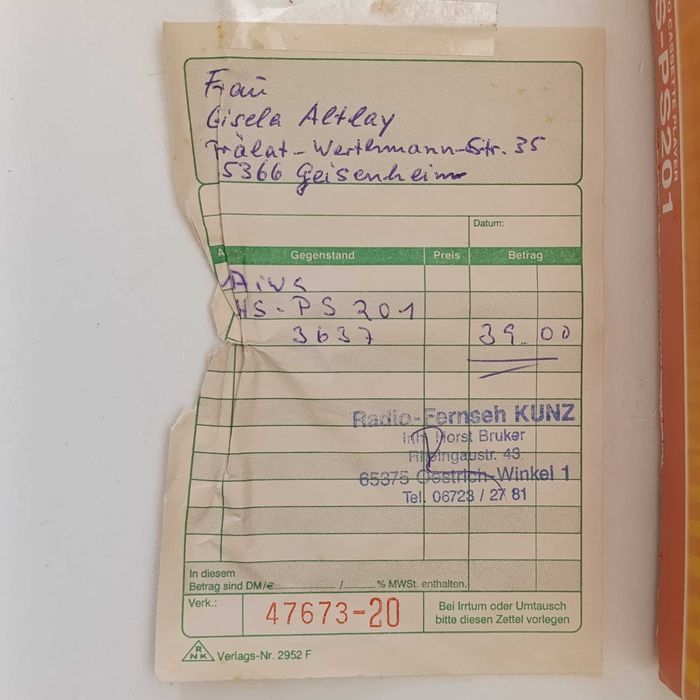 Frau
Gisela Altlay
Prälat-Werthmann-Str. 35
65366 Geisenheim
Datum:
A Gegenstand Preis Betrag
Aiwa
HS-PS 201
3637 39.00
Radio-Fernseh KUNZ
Inh. Horst Bruker
Rheingaustr. 43
65375 Oestrich-Winkel 1
Tel. 06723 / 27 81
In diesem
Betrag sind DM/€ / % MWSt. enthalten.
Verk.: 47673-20
Bei Irrtum oder Umtausch
bitte diesen Zettel vorlegen
RNK Verlags-Nr. 2952 F
CASSETTE PLAYER
S-PS201